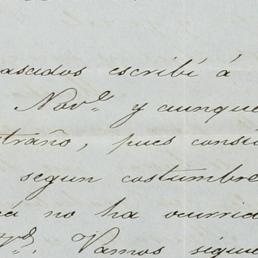 asados escribí á
Nov.e y aunque
traño, pues consi
segun costumbre
á no ha ocurrid
Vamos sigue